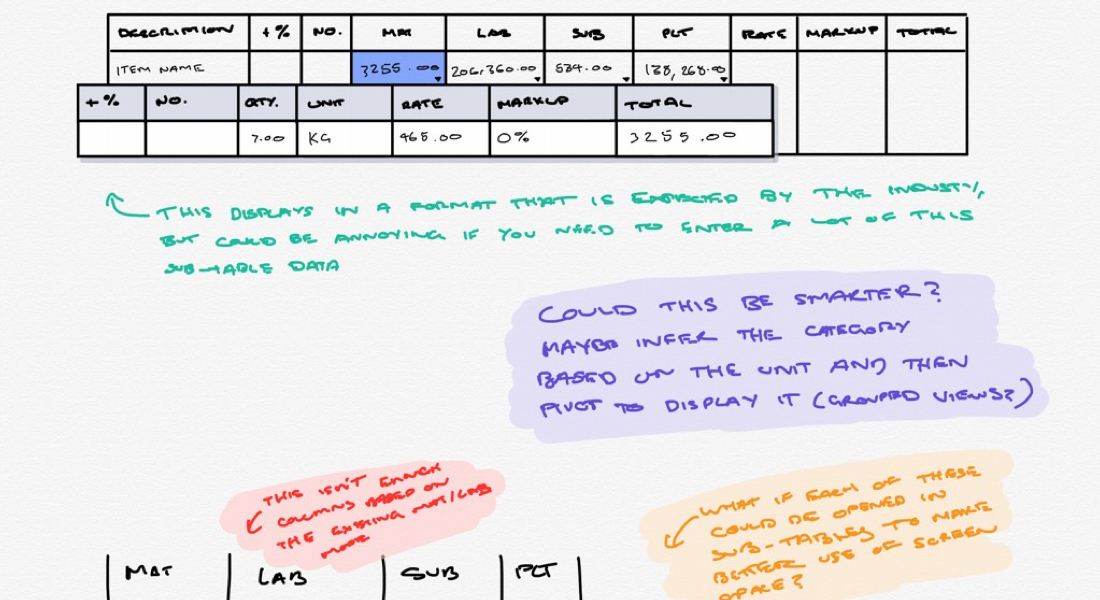 DESCRIPTION +% NO. MAT LAB SUB PLT RATE MARKUP TOTAL
ITEM NAME 3255.00 206,360.00 534.00 138,268.00
+% NO. QTY. UNIT RATE MARKUP TOTAL
7.00 KG 465.00 0% 3255.00
THIS DISPLAYS IN A FORMAT THAT IS EXPECTED BY THE INDUSTRY,
BUT COULD BE ANNOYING IF YOU NEED TO ENTER A LOT OF THIS
SUB-TABLE DATA
COULD THIS BE SMARTER?
MAYBE INFER THE CATEGORY
BASED ON THE UNIT AND THEN
PIVOT TO DISPLAY IT (GROUPED VIEWS?)
THIS ISN'T ENOUGH
COLUMNS BASED ON
THE EXISTING MAT/LAB
MODE
WHAT IF EACH OF THESE
COULD BE OPENED IN
SUB-TABLES TO MAKE
BETTER USE OF SCREEN
SPACE?
MAT LAB SUB PLT